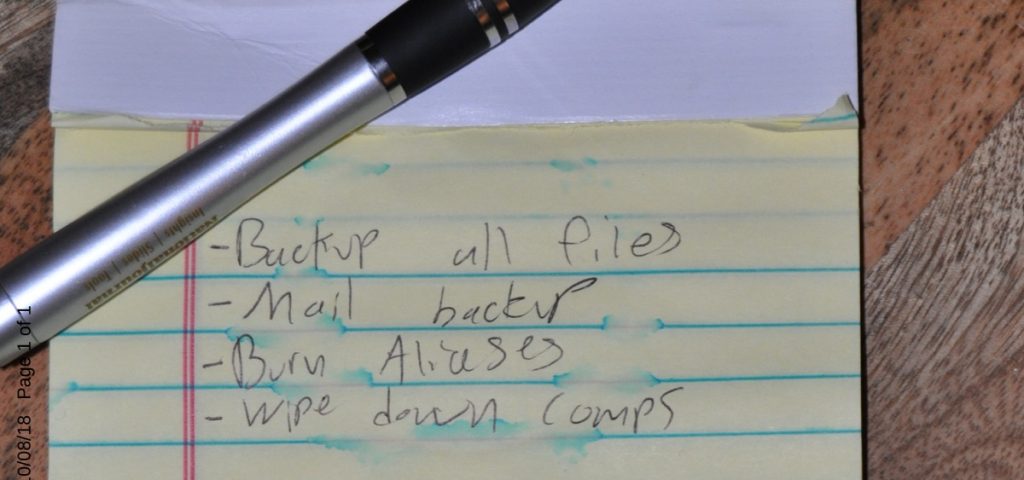 - Backup all files
- Mail backup
- Burn Aliases
- Wipe down comps
Nationaljournal
Insights | Slides | Tools
10/08/18 Page 1 of 1